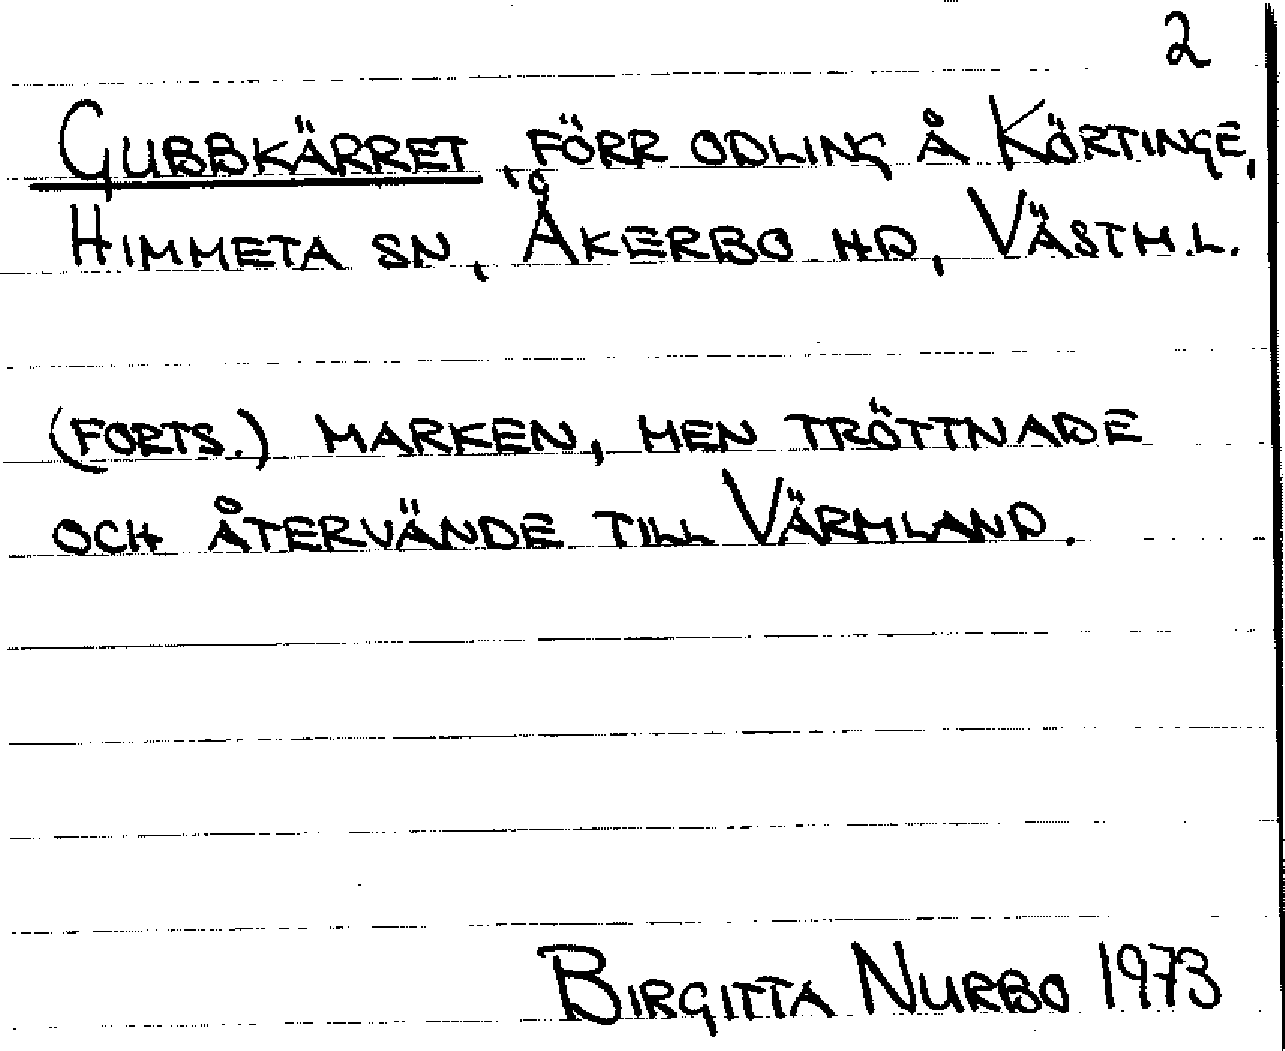 2
GUBBKÄRRET, FÖRR ODLING Å KÖRTINGE,
HIMMETA SN, ÅKERBO HD, VÄSTM.L.
(FORTS.) MARKEN, MEN TRÖTTNADE
OCH ÅTERVÄNDE TILL VÄRMLAND.
BIRGITTA NURBO 1973